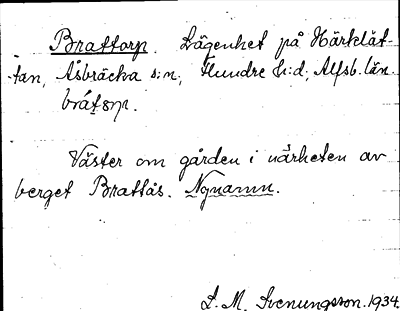 Brattorp. Lägenhet på Härklät-
tan, Åsbräcka s:n, Flundre h:d, Älfsb. län.
bråtɔrp.
Väster om gården i närheten av
berget Brattås. Nynamn.
L. M. Svenungsson. 1934.